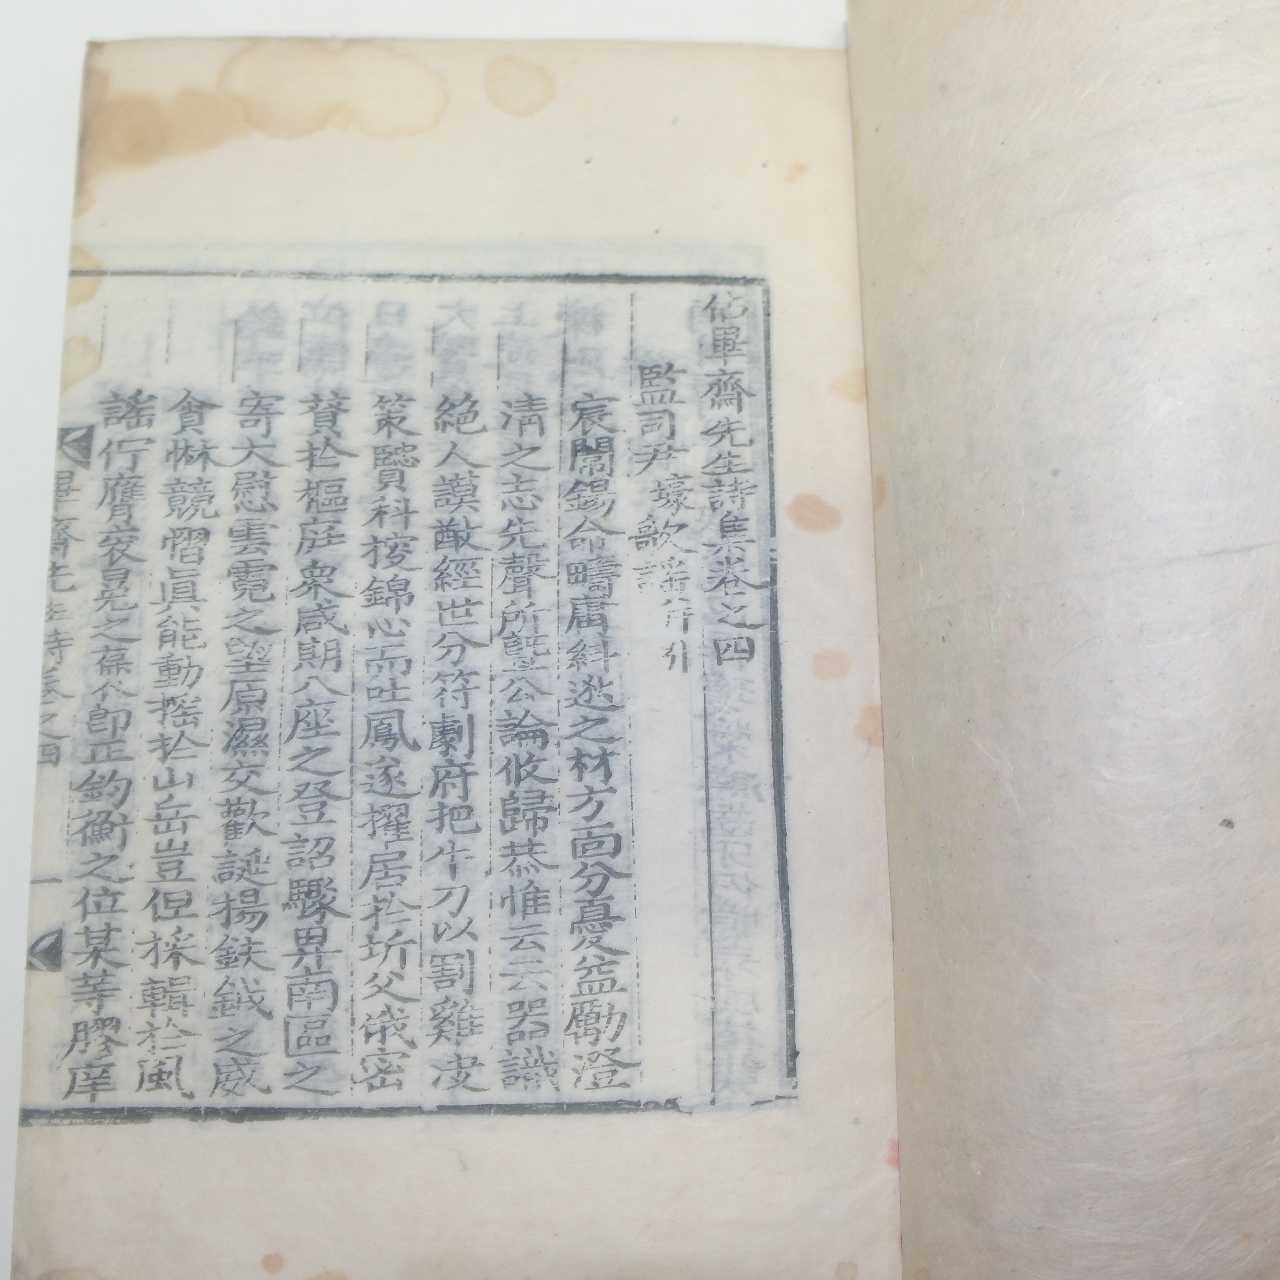 佔畢齋先生詩集卷之四
監司尹壕歌謠并引
宸闈錫命疇庸糾逖之材方面分憂益勵澄
淸之志先聲所曁公論攸歸恭惟云云器識
絶人謨猷經世分符劇府把牛刀以割雞决
策賢科挍錦心而吐鳳遂擢居於圻父俄密
贊於樞庭衆咸期八座之登詔驟畀南區之
寄大慰雲霓之望原濕交歡誕揚鈇鉞之威
貪惏競慴眞能動搖於山岳豈但採輯於風
謠佇膺衮冕之葆公卽正鈞衡之位某等膠庠
畢齋先生詩卷之四
一